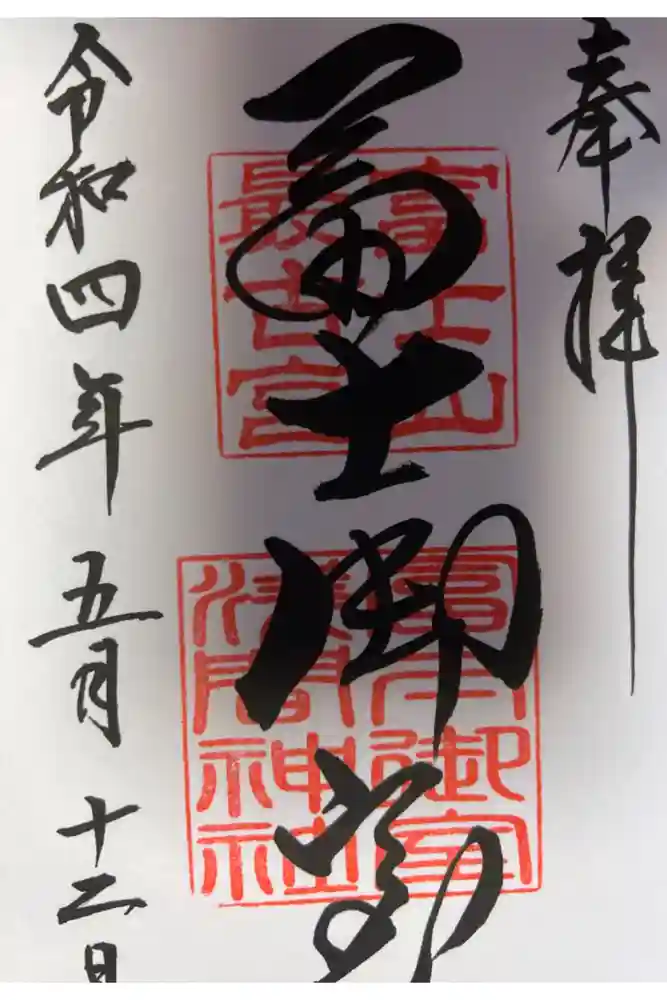 奉拝
冨士御室
富士山
最古宮
冨士御室
淺間神社
令和四年五月十二日